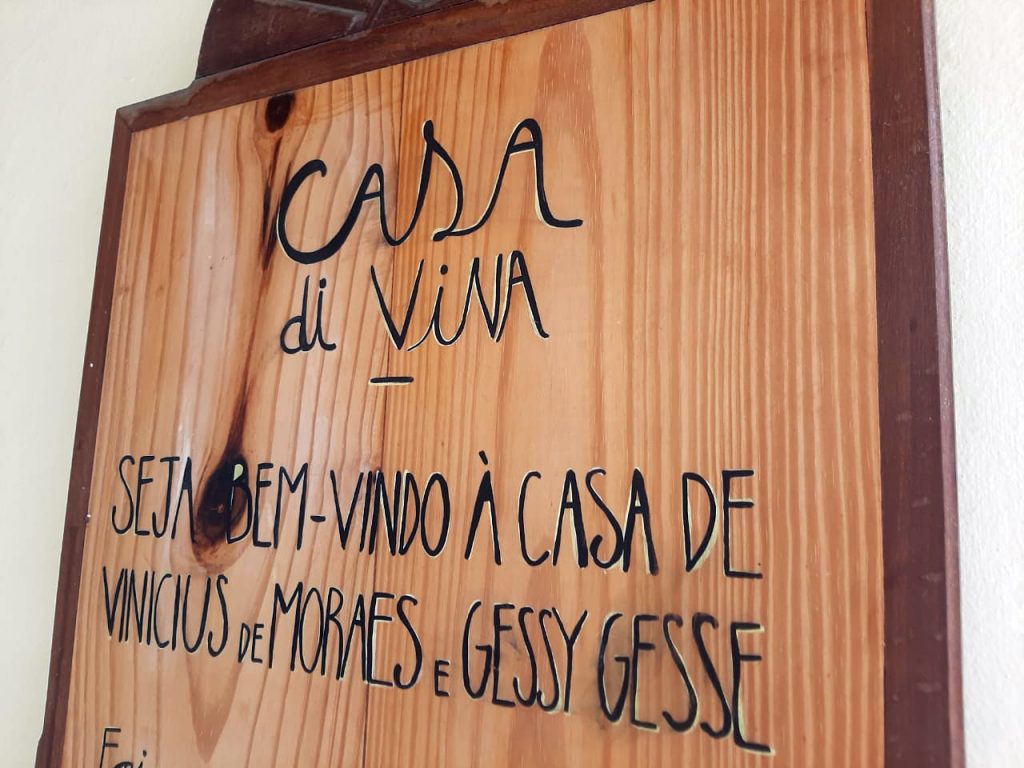 CASA
di ViNA
SEJA BEM-VINDO À CASA DE
VINICIUS DE MORAES E GESSY GESSE
Foi